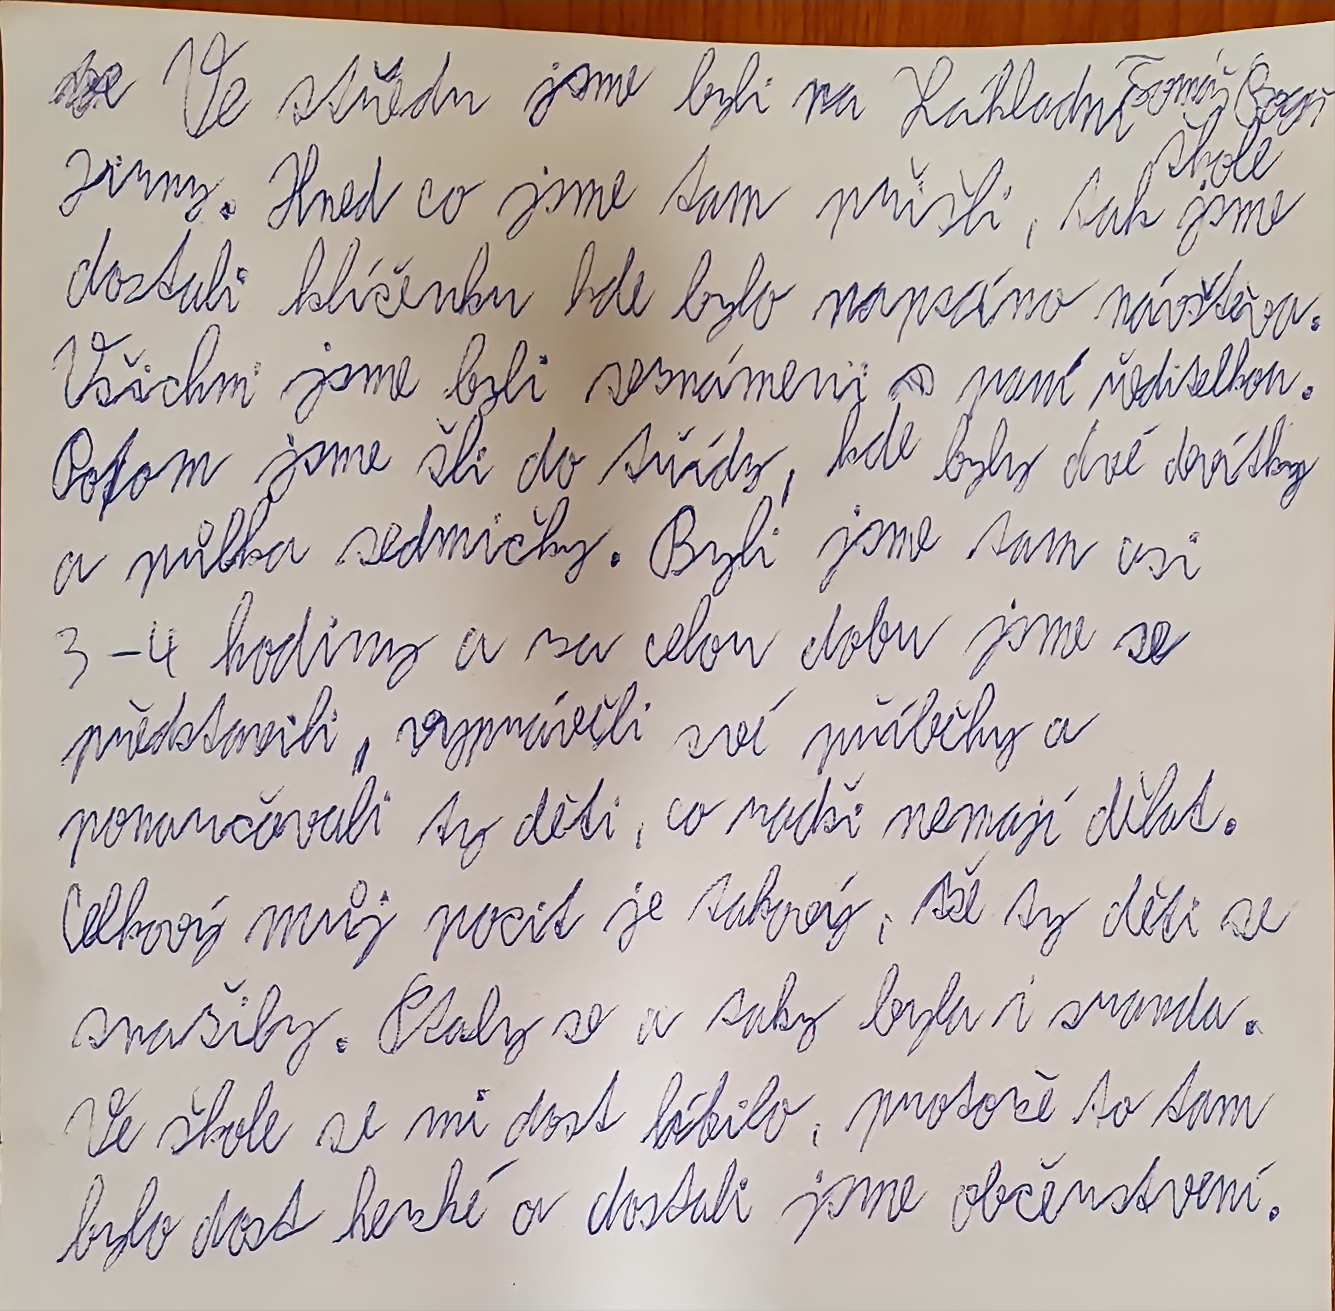 Ve středu jsme byli na Základní Tomáš
škole
Jirny. Hned co jsme tam přišli, tak jsme
dostali klíčenku kde bylo napsáno návštěva.
Všichni jsme byli seznámeni s paní ředitelkou.
Potom jsme šli do třídy, kde byly dvě devítky
a půlka sedmičky. Byli jsme tam asi
3-4 hodiny a za celou dobu jsme se
představili, vyprávěli své příběhy a
ponaučovali ty děti, co radši nemají dělat.
Celkový můj pocit je takový, že ty děti se
snažily. Ptaly se a taky byla i sranda.
Ve škole se mi dost líbilo, protože to tam
bylo dost hezké a dostali jsme občerstvení.